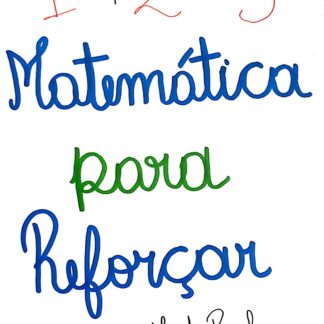 Matemática
para
Reforçar